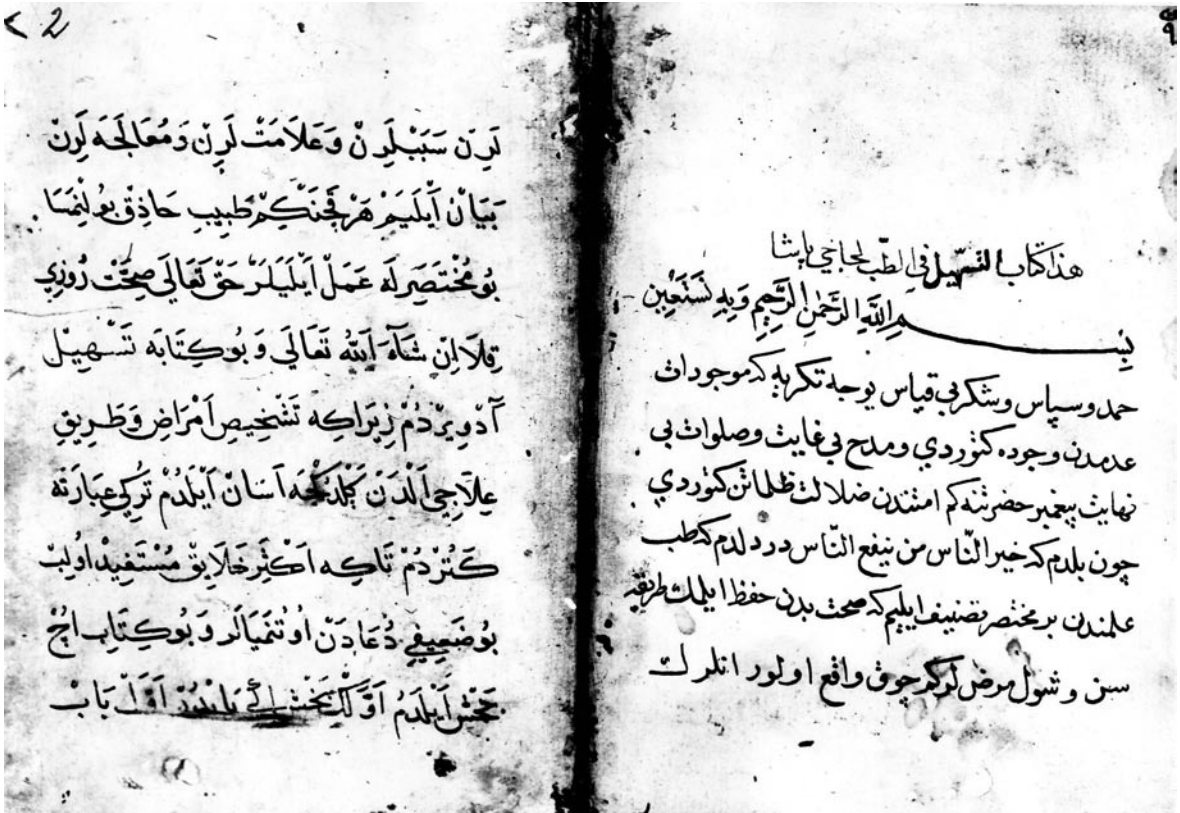 هذا كتاب التسهيل في الطب لحاجي پاشا
بسم الله الرحمن الرحيم وبه نستعين
حمد و سپاس و شكر بي قياس يوجه تكريه كه موجودات
عدمدن وجوده كتوردي و مدح بي غايت و صلوات بي
نهايت پيغمبر حضرتنه كم امتندن ضلالت ظلماتن كتوردي
چون بلدم كه خير النّاس من ينفع النّاس درد لدم كه طب
علمندن بر مختصر تصنيف ايليم كه صحت بدن حفظ ايلمك طريقه
سن و شول مرض لركم چوق واقع اولور انلرك
2
لَرِنَ سَبَبْلَرِنْ وَعَلَامَتْ لَرِنْ وَمُعَالَجَه لَرِنْ
بَيَانْ اَيْلَيَمْ هَرْ قَچَنْكِمْ طَبِيبِ حَاذِقْ بُولِنْمَسَا
بُو مُخْتَصَرِلَه عَمَلْ اَيْلَيَلَرْ حَقْ تَعَالَى صِحَّتْ رُوزِي
قِلَا اِنْ شَآءَ اَللّٰهُ تَعَالَى وَ بُو كِتَابَه تَسْهِيلْ
آدْ وِيرْدُمْ زِيرَاكِه تَشْخِيصِ اَمْرَاضْ وَ طَرِيقِ
عِلَاجِي اَلْدَنْ كَلْدُكْجَه اَسَانْ اَيْلَدُمْ تُرْكِي عِبَارَتَه
كَتُرْدُمْ تَاكِه اَكْثَرِ خَلَايِقْ مُسْتَفِيدْ اُولُبْ
بُو ضَعِيفِي دُعَادَنْ اُونُتْمَيَالَرْ وَ بُو كِتَابِ اُچْ
بَخْشْ اَيْلَدُمْ اَوَّلْكِ بَخْشْ اَوَّلْ بَابْ